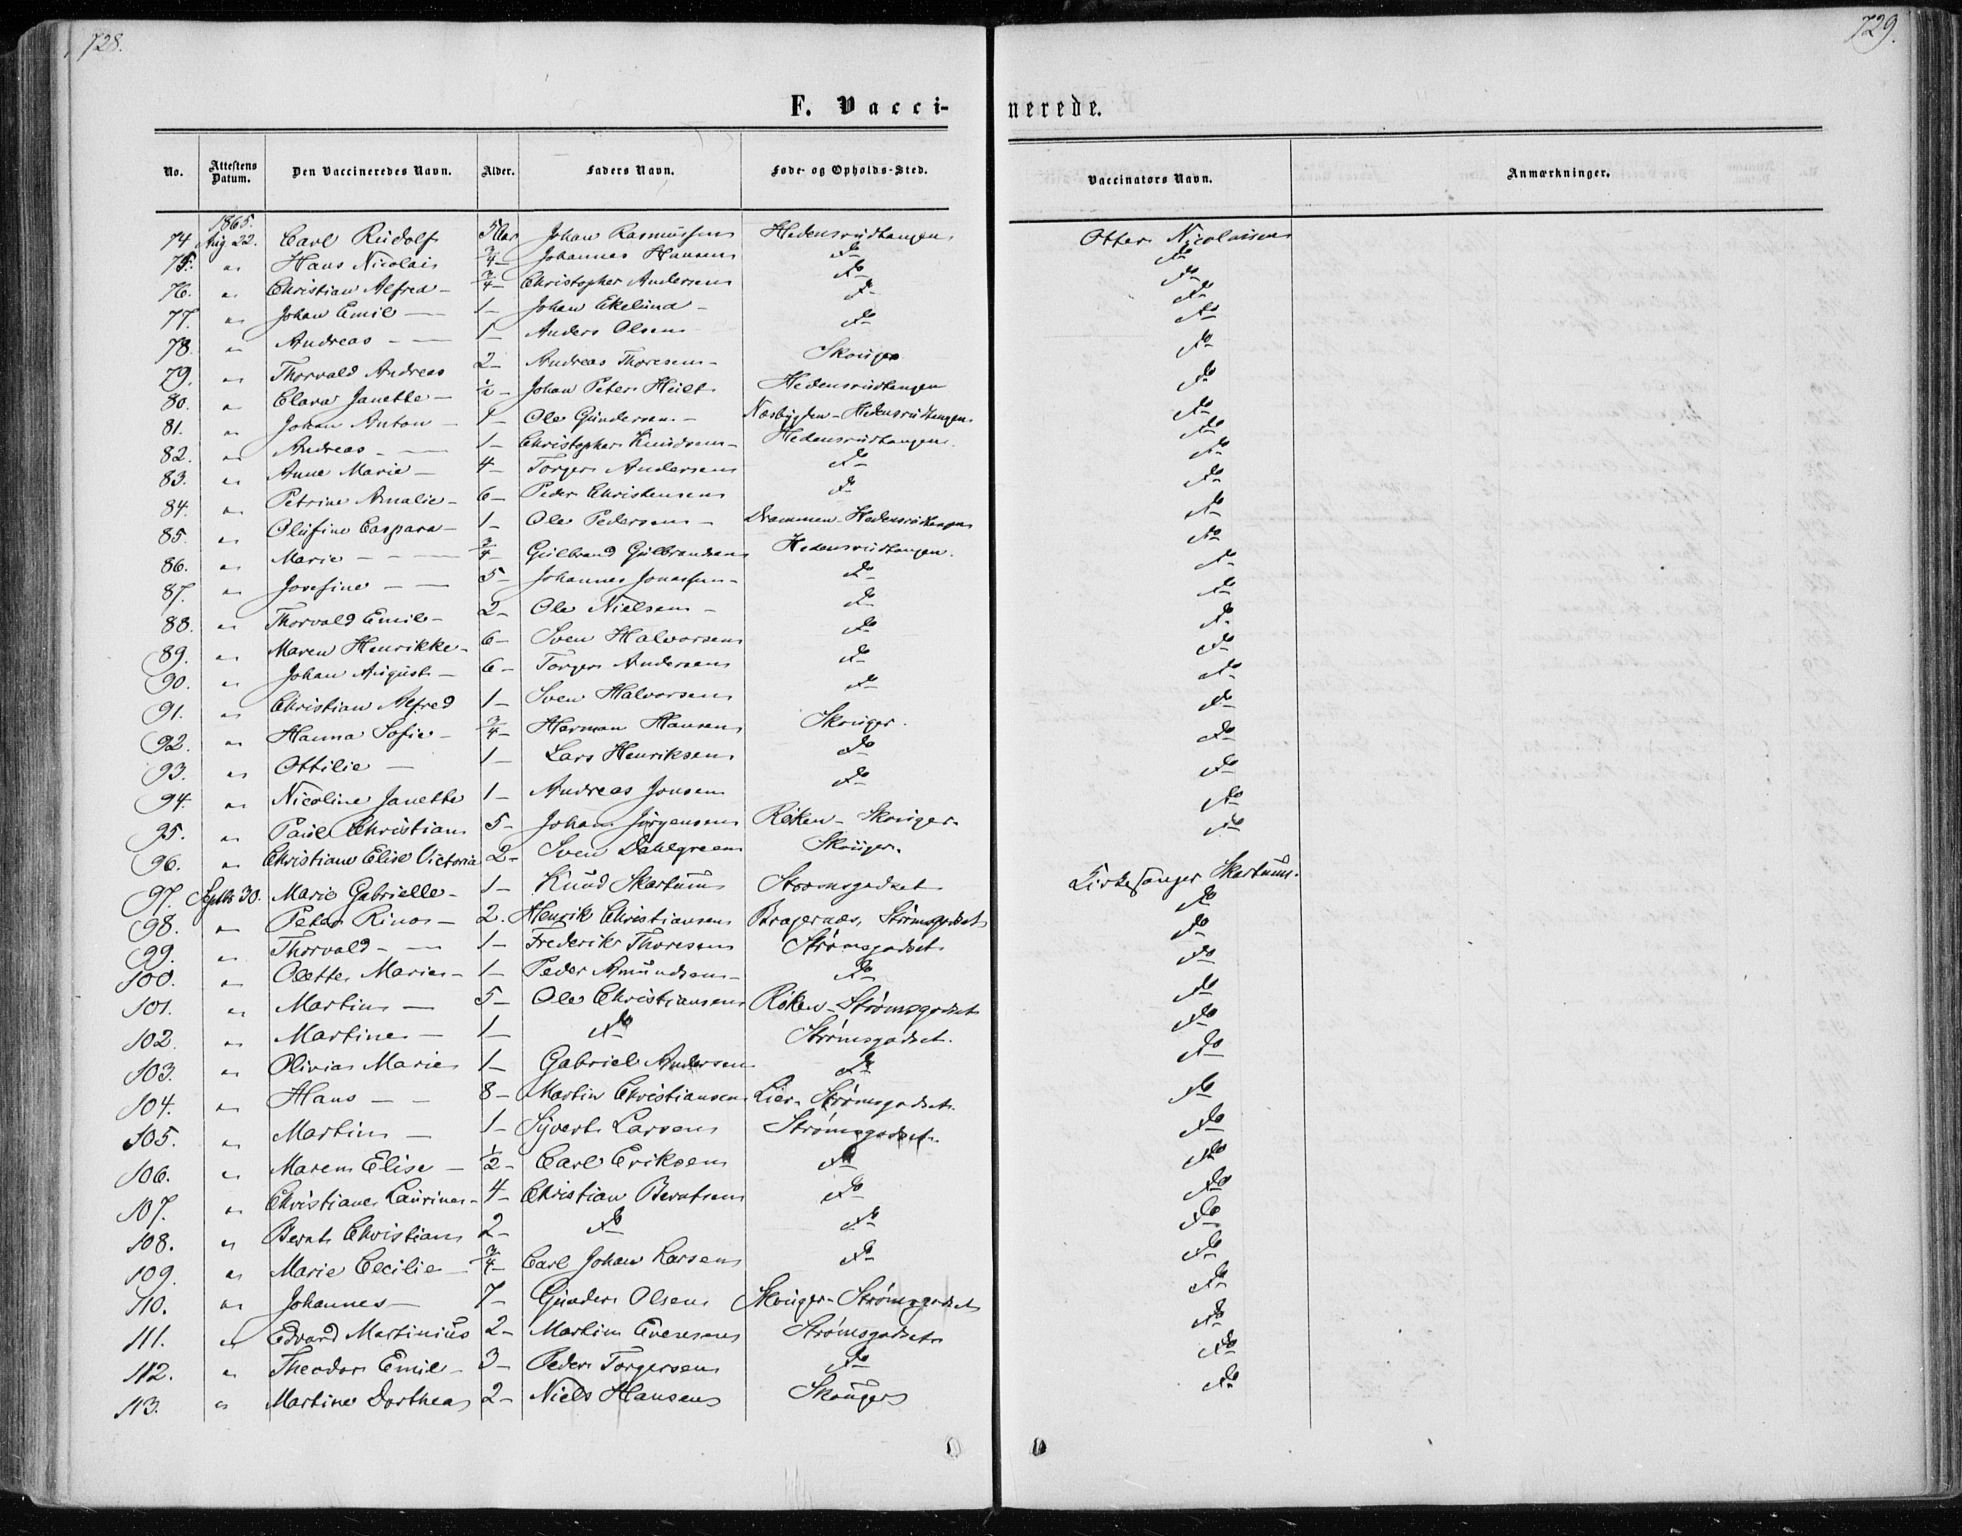 728.
729.
F. Vacci-
nerede.
No. Attestens Datum. Den Vaccineredes Navn. Alder. Faders Navn. Føde- og Opholds-Sted. Vaccinators Navn. Anmærkninger.
1865.
74 Aug 22. Carl Rudolf 5 Aar Johan Rasmussen Hedensrudtangen Otter Nicolaisen
75. " Hans Nicolai 3/4 – Johannes Hansen Do Do
76. " Christian Alfred – 3/4 – Christopher Andersen Do Do
77. " Johan Emil – 1 – Johan Ekelund – Do Do
78. " Andreas – – 1 – Anders Olsen Do Do
79. " Thorvald Andreas 2 – Andreas Thoresen – Skouger Do
80. " Clara Janette – 1/2 – Johan Peter Hult Hedensrudtangen Do
81. " Johan Anton – 1 – Ole Gundersen – Næsbygden – Hedensrudtangen Do
82. " Andreas – – 1 – Christopher Knudsen – Hedensrudtangen. Do
83. " Anne Marie – 4 – Torger Andersen Do Do
84. " Petrine Amalie – 6 – Peder Christensen Do Do
85. " Olufine Caspara – 1 – Ole Pedersen – Drammen – Hedensrudtangen Do
86. " Marie – – – 3/4 – Gulbrand Gulbrandsen Hedensrudtangen. Do
87. " Josefine – – 5 – Johannes Jonassen – Do Do
88. " Thorvald Emil – 2 – Ole Nielsen – Do Do
89. " Maren Henrikke – 6 – Sven Halvorsen Do Do
90. " Johan August – 6 – Torger Andersen Do Do
91. " Christian Alfred 1 – Sven Halvorsen Do Do
92. " Hanna Sofie – 3/4 – Herman Hansen Skouger. Do
93. " Ottilie – 1 – Lars Henriksen Do Do
94. " Nicoline Janette 1 – Andreas Jonsen Do Do
95. " Paul Christian 5 – Johan Jørgensen Røken – Skouger. Do
96. " Christiane Elise Victoria 2 – Sven Dahlgreen Skouger. Do
97. Septbr 30. Marie Gabrielle – 1 – Knud Skartum Strømsgodset Kirkesanger Skartum.
98. " Peter Rinor – 2. Henrik Christiansen Bragernæs, Strømsgodset Do
99. " Thorvald – – 1 – Frederik Thoresen Strømsgodset Do
100. " Olette Marie – 1 – Peder Amundsen – Do Do
101. " Martin – 5 – Ole Christiansen Røken – Strømsgodset Do
102. " Martine – 1 – Do Strømsgodset. Do
103. " Olivia Marie 1 – Gabriel Andersen Do Do
104. " Hans – – 8 – Martin Christiansen Lier – Strømsgodset. Do
105. " Martin – 1 – Syvert Larsen Strømsgodset. Do
106. " Maren Elise – 1/2 – Carl Eriksen Do Do
107. " Christiane Laurine – 4 – Christian Berntsen Do Do
108. " Bernt Christian 2 – Do Do Do
109. " Marie Cecilie – 3/4 – Carl Johan Larsen Do Do
110. " Johannes – 7 – Gunder Olsen Skouger – Strømsgodset Do
111. " Edvard Martinius 2 – Martin Evensen Strømsgodset Do
112. " Theodor Emil – 3 – Peder Torgersen Do Do
113. " Martine Dorthea 2 – Niels Hansen Skouger Do